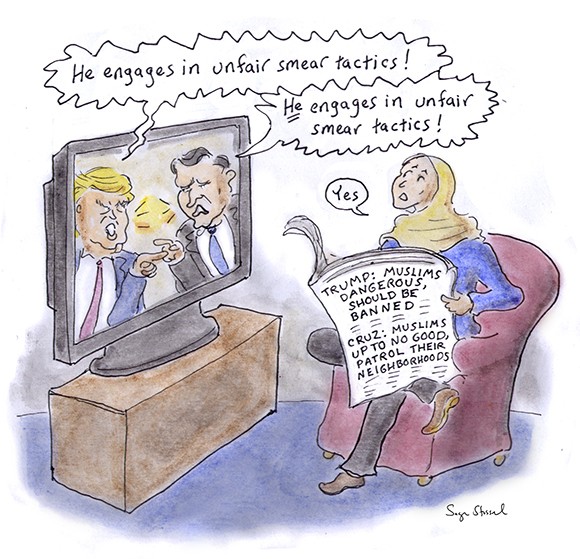 He engages in unfair smear tactics!
He engages in unfair
smear tactics!
Yes
TRUMP: MUSLIMS
DANGEROUS,
SHOULD BE
BANNED
CRUZ: MUSLIMS
UP TO NO GOOD,
PATROL THEIR
NEIGHBORHOODS
Sage Stossel